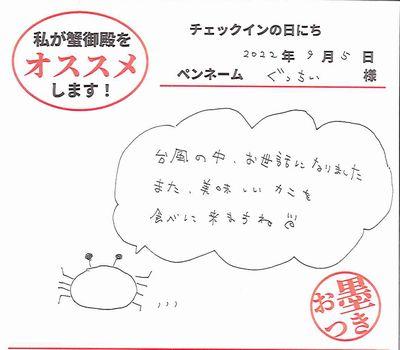 私が蟹御殿を
オススメ
します！
チェックインの日にち
2022年 9月 5日
ペンネーム ぐっちぃ 様
台風の中、お世話になりました
また、美味しいカニを
食べに来ますね
お墨
つき